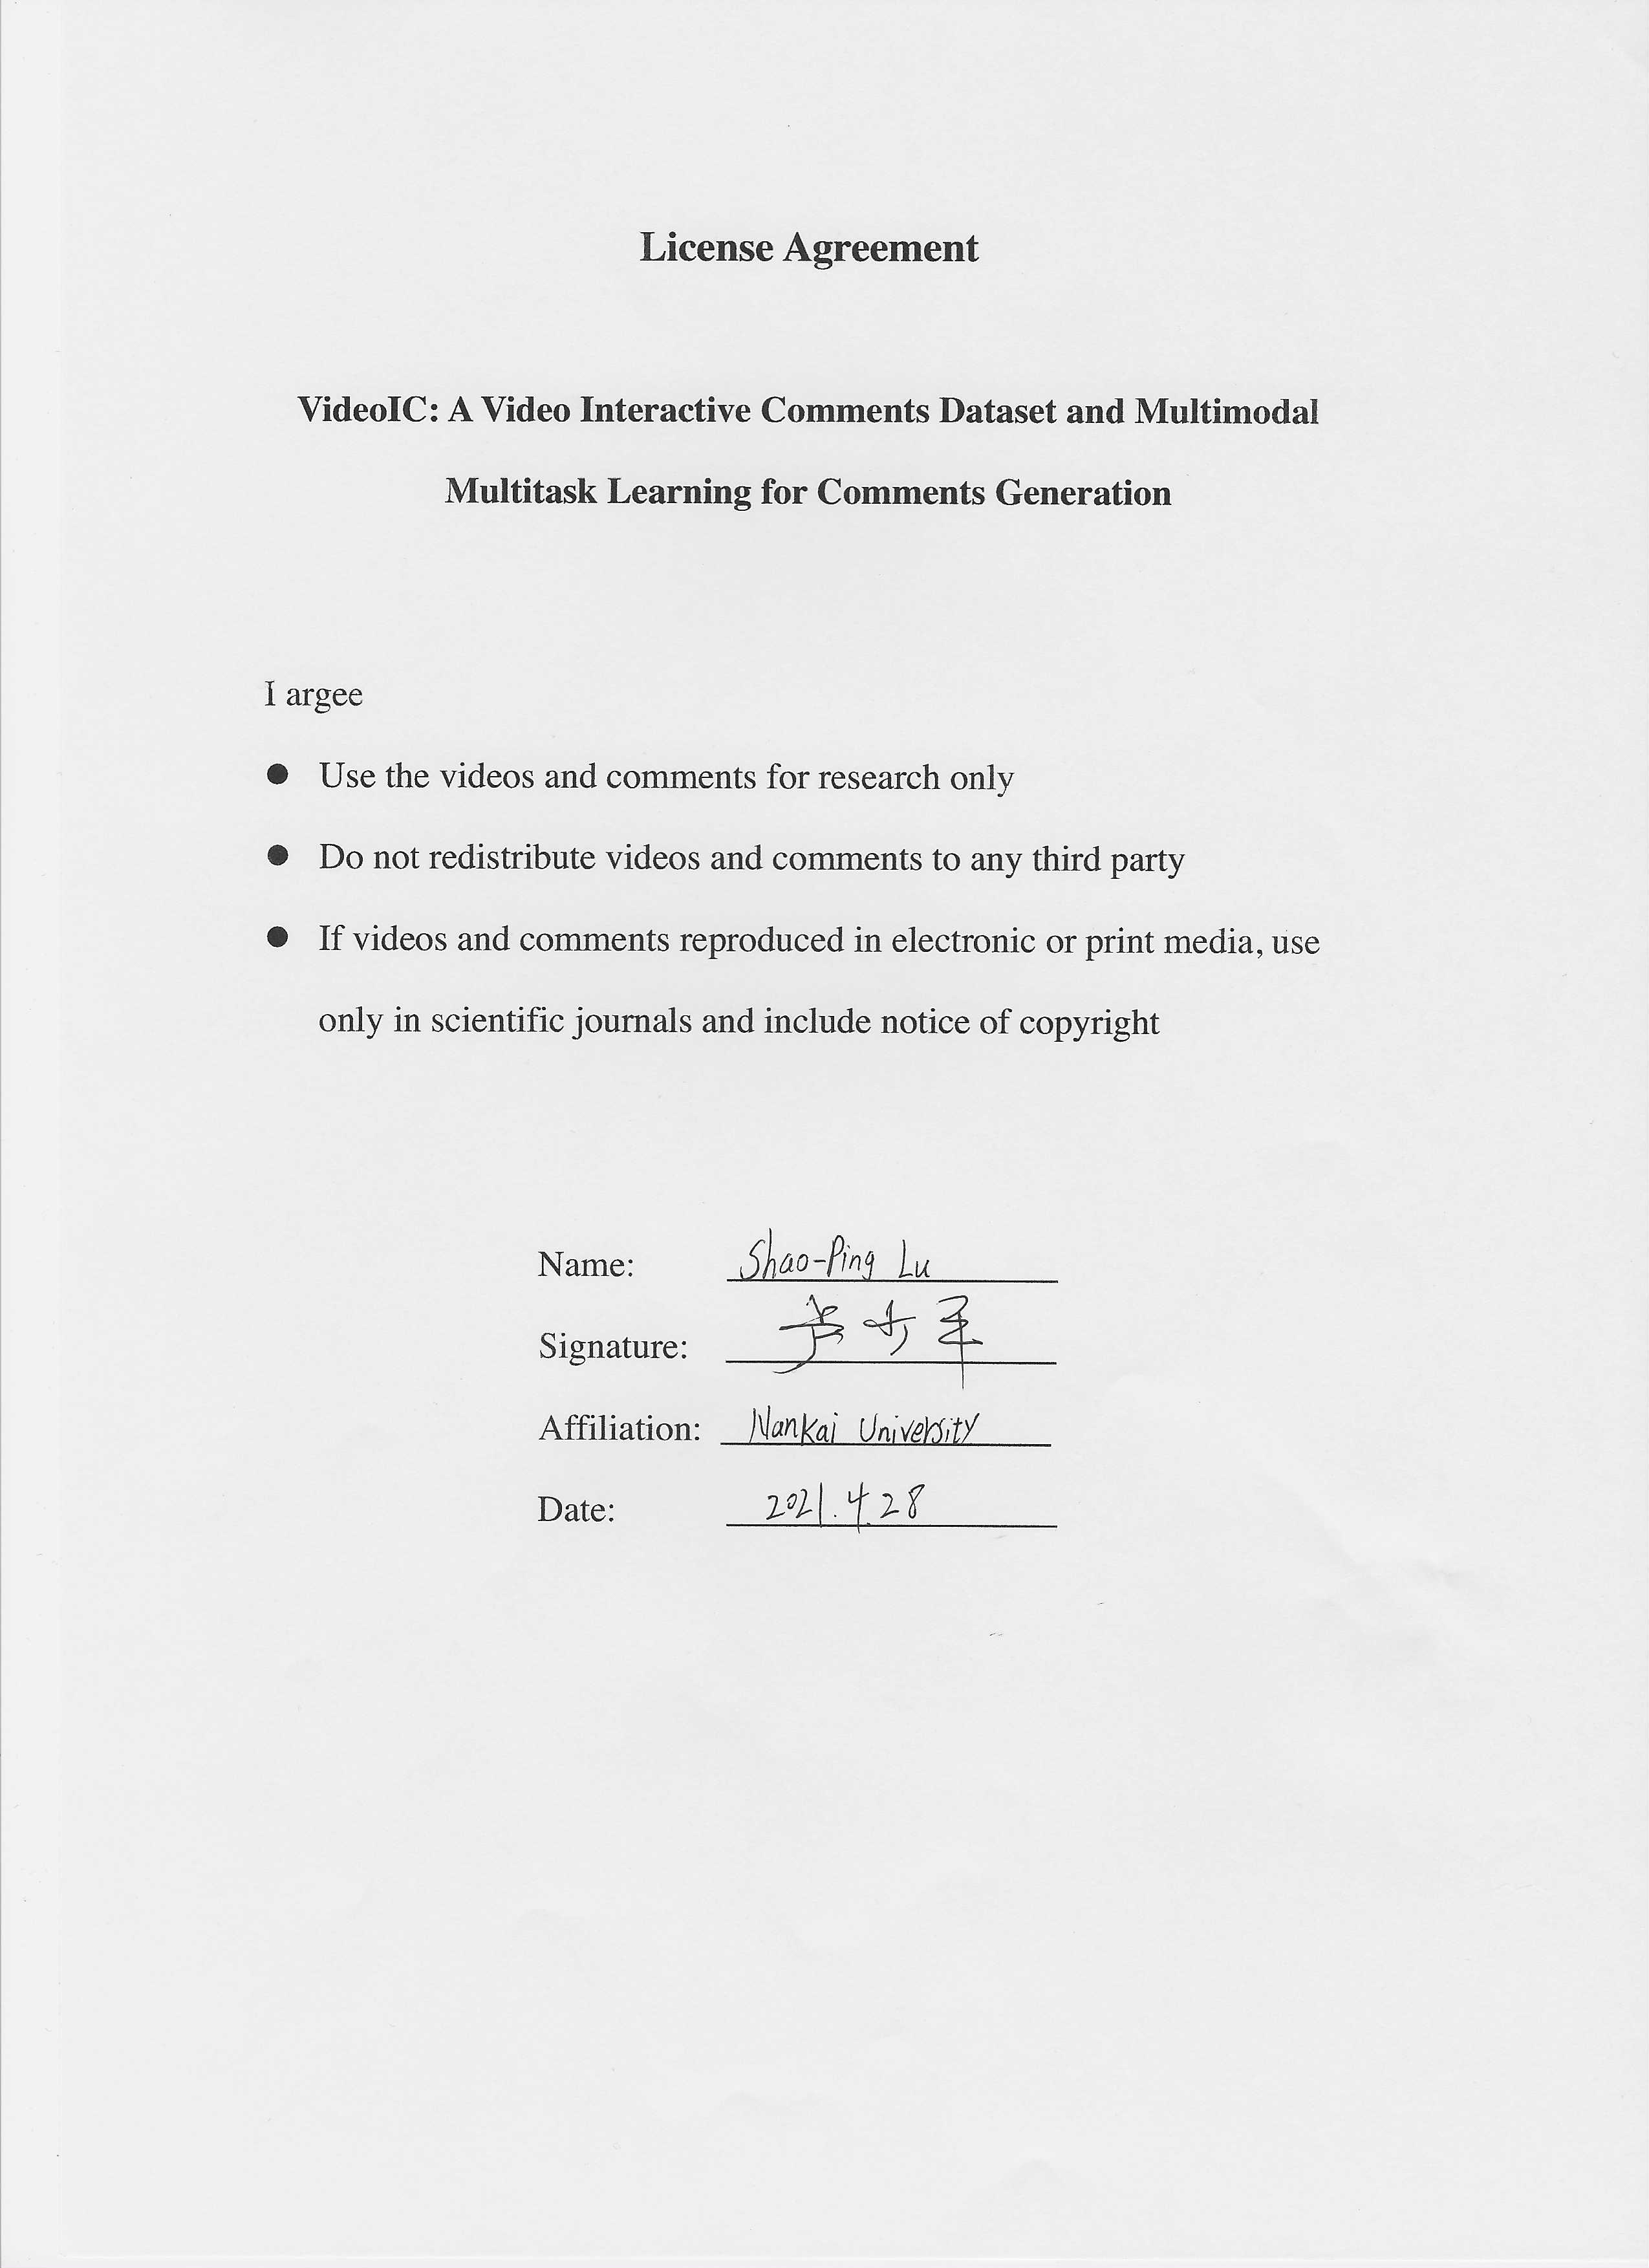 License Agreement
VideoIC: A Video Interactive Comments Dataset and Multimodal
Multitask Learning for Comments Generation
I argee
● Use the videos and comments for research only
● Do not redistribute videos and comments to any third party
● If videos and comments reproduced in electronic or print media, use
only in scientific journals and include notice of copyright
Name: Shao-Ping Lu
Signature: 卢少平
Affiliation: Nankai University
Date: 2021.4.28